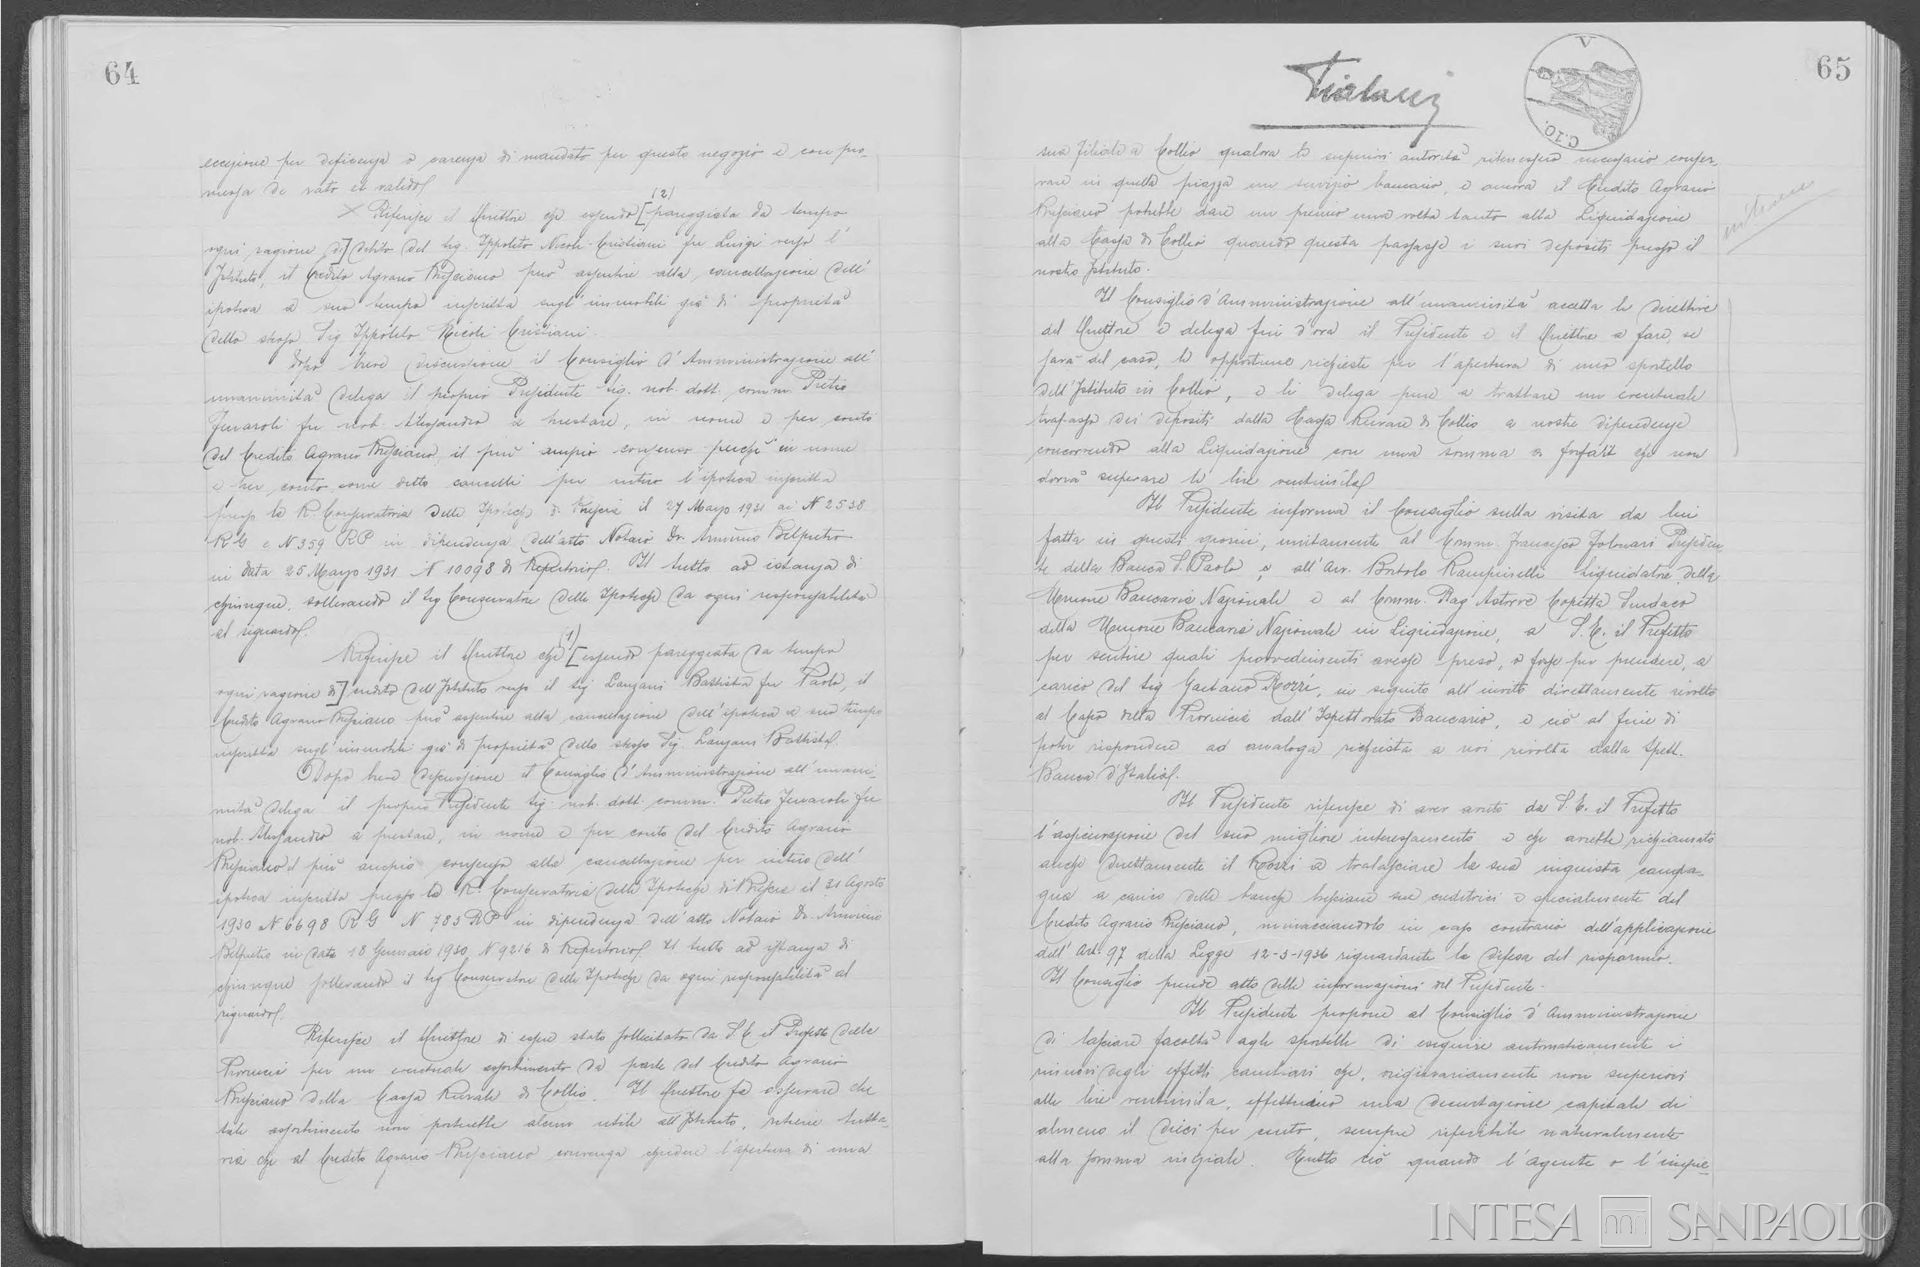 64
eccezione per deficenza o carenza di mandato per questo negozio e con pro-
messa de rato et valido.
(2)
Riferisce il Direttore che essendo [pareggiata da tempo
ogni ragione di] debito del sig. Ippolito Nicoli-Cristiani fu Luigi verso l'
Istituto, il Credito Agrario Bresciano può assentire alla cancellazione dell'
ipoteca a suo tempo inscritta sugl'immobili già di proprietà
dello stesso Sig Ippolito Nicoli Cristiani.
Dopo breve discussione il Consiglio d'Amministrazione all'
unanimità delega il proprio Presidente sig. nob. dott. comm. Pietro
Fenaroli fu nob. Alessandro a prestare, in nome e per conto
del Credito Agrario Bresciano, il più ampio consenso perchè in nome
e per conto come detto cancelli per intero l'ipoteca inscritta
presso la R. Conservatoria delle Ipoteche di Brescia il 27 Marzo 1931 ai N 2538
RG e N 359 RP in dipendenza dell'atto Notaio Dr. Arminio Belpietro
in data 25 Marzo 1931 N 10098 di Repertorio. Il tutto ad istanza di
chiunque, sollevando il sig Conservatore delle Ipoteche da ogni responsabilità
al riguardo.
(1)
Riferisce il Direttore che [essendo pareggiata da tempo
ogni ragione di] credito dell'Istituto verso il sig Lanzani Battista fu Paolo, il
Credito Agrario Bresciano può assentire alla cancellazione dell'ipoteca a suo tempo
inscritta sugl'immobili già di proprietà dello stesso Sig. Lanzani Battista.
Dopo breve discussione il Consiglio d'Amministrazione all'unani-
mità delega il proprio Presidente sig. nob. dott. comm. Pietro Fenaroli fu
nob. Alessandro a prestare, in nome e per conto del Credito Agrario
Bresciano il più ampio consenso alla cancellazione per intero dell'
ipoteca inscritta presso la R. Conservatoria delle Ipoteche di Brescia il 21 Agosto
1930 N 6698 RG N 783 RP in dipendenza dell'atto Notaio Dr. Arminio
Belpietro in data 18 Gennaio 1930 N 9216 di Repertorio. Il tutto ad istanza di
chiunque sollevando il sig Conservatore delle Ipoteche da ogni responsabilità al
riguardo.
Riferisce il Direttore di esser stato sollecitato da S.E il Prefetto della
Provincia per un eventuale assorbimento da parte del Credito Agrario
Bresciano della Cassa Rurale di Collio. Il Direttore fa osservare che
tale assorbimento non porterebbe alcun utile all'Istituto, ritiene tutta-
via che al Credito Agrario Bresciano convenga chiedere l'apertura di una
65
V
G.10.
sua filiale a Collio qualora le superiori autorità ritenessero necessario conser-
vare in quella piazza un servizio bancario, e ancora il Credito Agrario
Bresciano potrebbe dare un premio una volta tanto alla Liquidazione
alla Cassa di Collio quando questa passasse i suoi depositi presso il
nostro Istituto.
Il Consiglio d'Amministrazione all'unanimità accetta le direttive
del Direttore e delega fin d'ora il Presidente e il Direttore a fare, se
sarà del caso, le opportune richieste per l'apertura di uno sportello
dell'Istituto in Collio, e li delega pure a trattare un eventuale
trapasso dei depositi dalla Cassa Rurale di Collio a nostre dipendenze
concorrendo alla Liquidazione con una somma a forfait che non
dovrà superare le lire ventimila.
Il Presidente informa il Consiglio sulla visita da lui
fatta in questi giorni, unitamente al Comm. Francesco Folonari Presiden
te della Banca S. Paolo e all'Avv. Bortolo Rampinelli Liquidatore della
Unione Bancaria Nazionale e al Comm. Rag Astorre Copetta Sindaco
della Unione Bancaria Nazionale in Liquidazione, a S.E. il Prefetto
per sentire quali provvedimenti avesse preso, o fosse per prendere, a
carico del sig Gaetano Rozzi, in seguito all'invito direttamente rivolto
al Capo della Provincia dall'Ispettorato Bancario, e ciò al fine di
poter rispondere ad analoga richiesta a noi rivolta dalla Spett.
Banca d'Italia.
Il Presidente riferisce di aver avuto da S.E. il Prefetto
l'assicurazione del suo migliore interessamento e che avrebbe richiamato
anche direttamente il Rozzi a tralasciare la sua ingiusta campa-
gna a carico delle banche bresciane sue creditrici e specialmente del
Credito Agrario Bresciano, minacciandolo in caso contrario dell'applicazione
dell'Art. 97 della Legge 12-3-1936 riguardante la difesa del risparmio.
Il Consiglio prende atto delle informazioni del Presidente.
Il Presidente propone al Consiglio d'Amministrazione
di lasciare facoltà agli sportelli di eseguire automaticamente i
rinnovi degli effetti cambiari che, originariamente non superiori
alle lire ventimila, effettuino una decurtazione capitale di
almeno il dieci per cento, sempre riferibile naturalmente
alla somma iniziale. Tutto ciò quando l'agente o l'impie-
INTESA SANPAOLO